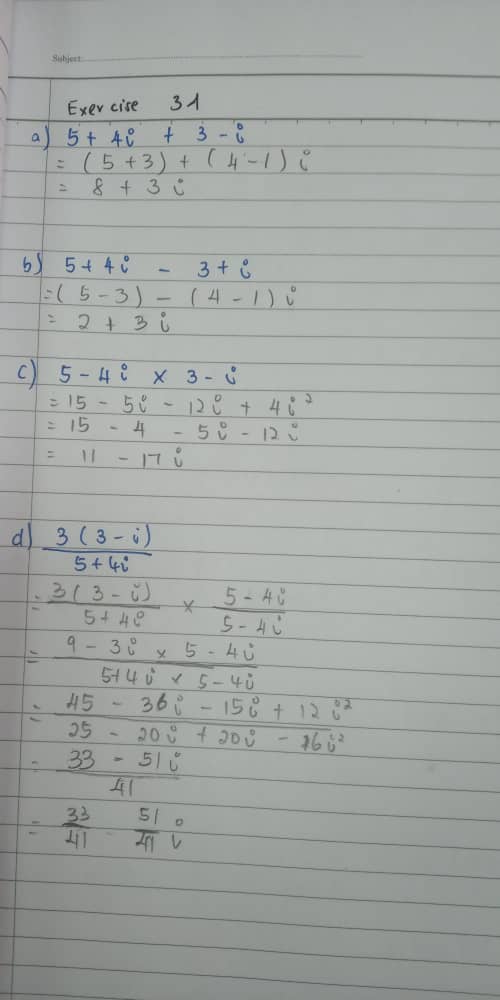 Subject:
Exercise 31
a) 5 + 4i + 3 - i
= (5 + 3) + (4 - 1) i
= 8 + 3 i
b) 5 + 4i - 3 + i
= (5 - 3) - (4 - 1) i
= 2 + 3 i
c) 5 - 4i × 3 - i
= 15 - 5i - 12i + 4i²
= 15 - 4 - 5i - 12i
= 11 - 17 i
d) 3 (3 - i)
5 + 4i
= 3 (3 - i) × 5 - 4i
5 + 4i 5 - 4i
= 9 - 3i × 5 - 4i
5 + 4i × 5 - 4i
= 45 - 36i - 15i + 12 i²
25 - 20i + 20i - 16i²
= 33 - 51i
41
= 33 - 51 i
41 41